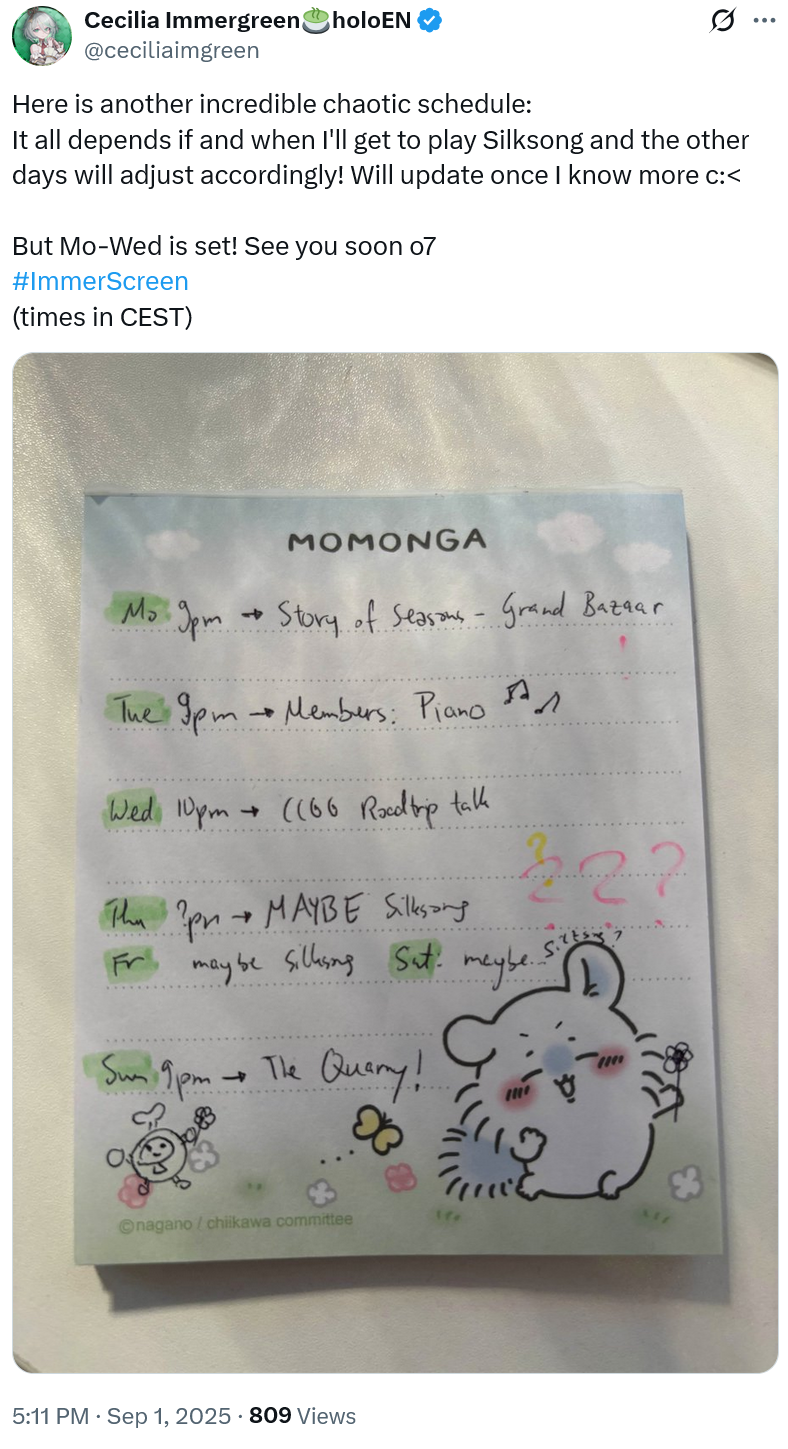 Cecilia Immergreen🍵holoEN
@ceciliaimgreen
Here is another incredible chaotic schedule:
It all depends if and when I'll get to play Silksong and the other
days will adjust accordingly! Will update once I know more c:<
But Mo-Wed is set! See you soon o7
#ImmerScreen
(times in CEST)
MOMONGA
Mo 9pm → Story of Seasons - Grand Bazaar
Tue 9pm → Members: Piano
Wed 10pm → CCGG Roadtrip talk
???
Thu ?pm → MAYBE Silksong
Fr maybe silksong Sat: maybe
Sun 9pm → The Quarry!
©nagano / chiikawa committee
5:11 PM · Sep 1, 2025 · 809 Views